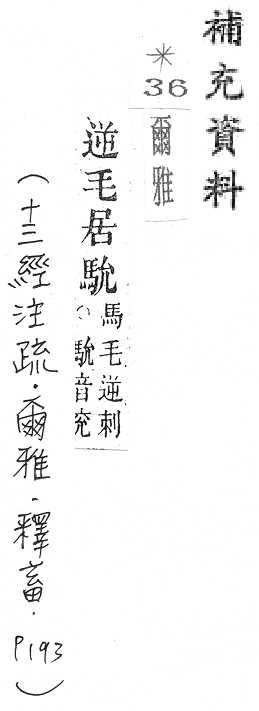 補充資料
*36 爾雅
逆毛居馻
馬毛逆刺
○馻音兖
(十三經注疏·爾雅·釋畜·P193)